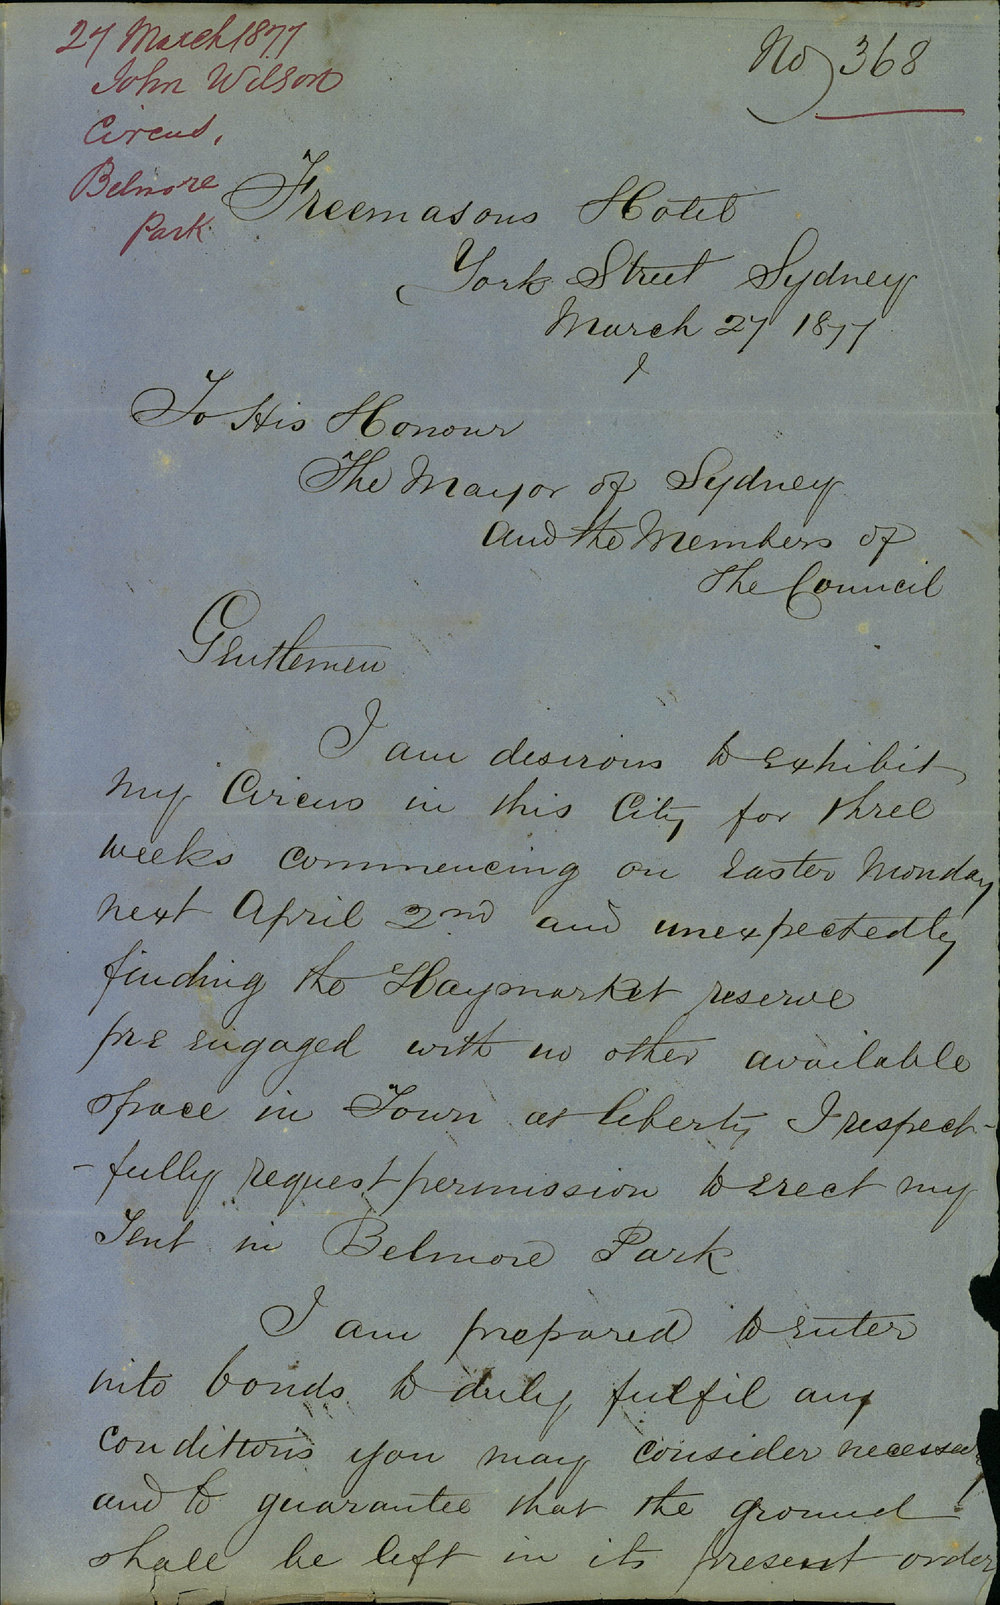 27 March 1877
John Wilson
Circus,
Belmore
Park
No 368
Freemasons Hotel
York Street Sydney
March 27 1877
To His Honour
The Mayor of Sydney
and the Members of
the Council
Gentlemen
I am desirous to exhibit
my Circus in this City for three
weeks commencing on Easter Monday
next April 2nd and unexpectedly
finding the Haymarket reserve
pre engaged with no other available
space in Town at liberty I respect-
-fully request permission to erect my
Tent in Belmore Park
I am prepared to enter
into bonds to duly fulfil any
conditions you may consider necessary
and to guarantee that the ground
shall be left in its present order